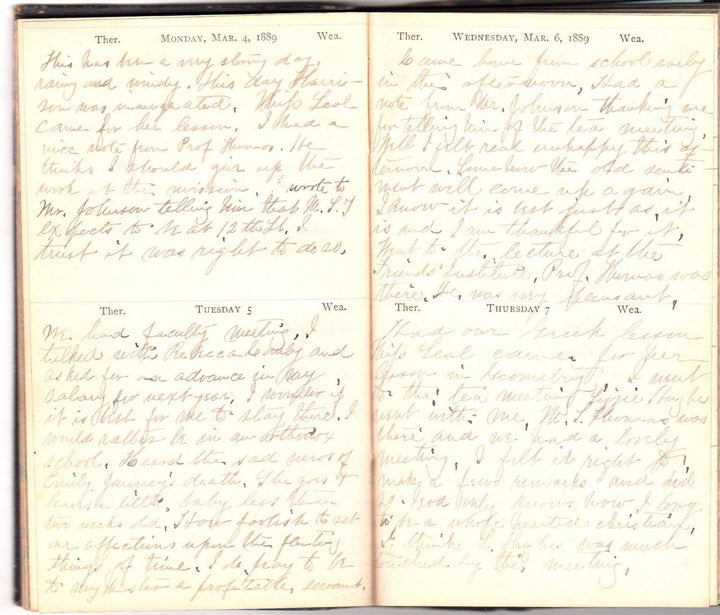 Ther. MONDAY, MAR. 4, 1889 Wea.
This has been a very stormy day,
rainy and windy. This day Harri-
son was inaugurated. Miss Leal
came for her lesson. I had a
nice note from Prof Thomas. He
thinks I should give up the
work at the mission. I wrote to
Mr. Johnson telling him that M. S. T
expects to be at 12th St. I
trust it was right to do so.
Ther. TUESDAY 5 Wea.
We had faculty meeting, I
talked with Rebecca and
asked for an advance in my
salary for next year. I wonder if
it is best for me to stay there. I
would rather be in an orthodox
school. Heard the sad news of
Emily death. She
leaves a little baby less than
two weeks old. How foolish to set
our affections upon the fleeting
things of time. I do pray to be
to my Master a profitable servant.
Ther. WEDNESDAY, MAR. 6, 1889 Wea.
Came home from school early
in the afternoon, Had a
note from Mr. Johnson thanking me
for telling him of the tea meeting,
Well I felt real unhappy this af-
ternoon. Somehow the old senti-
ment will come up again.
I know it is best just as it
is and I am thankful for it,
Went to the lecture at the
Friends' Institute, Prof. Thomas was
there. He was very pleasant,
Ther. THURSDAY 7 Wea.
Had our Greek lesson
Miss Leal came for her
lesson in Geometry, I went
to the tea meeting Lizzie Hughes
went with me, M. S. Thomas was
there and we had a lovely
meeting, I felt it right to
make a few remarks and did
so. God only knows how I long
to be a whole hearted christian,
I think L. Hughes was much
touched by the meeting,